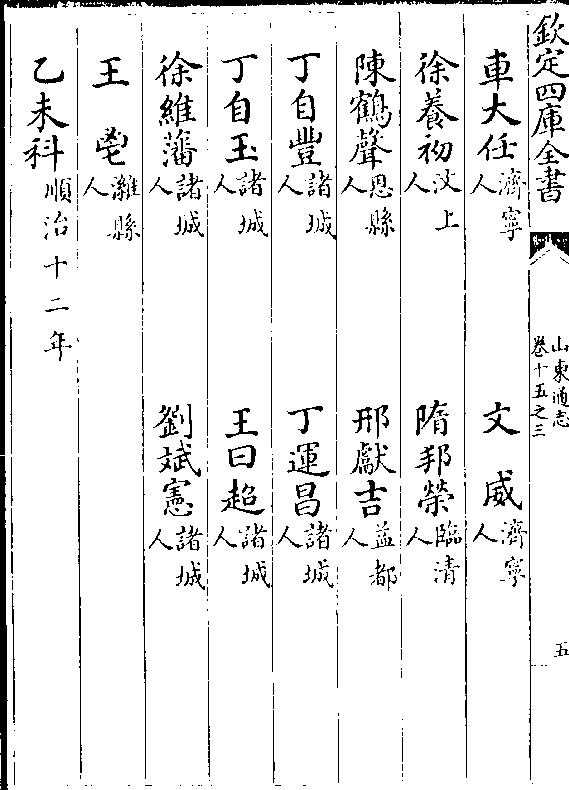 欽定四庫全書
山東通志
卷十五之三
五
車大任 濟寧人 文威 濟寧人
徐養初 汶上人 隋邦榮 臨清人
陳鶴聲 恩縣人 邢獻吉 益都人
丁自豐 諸城人 丁運昌 諸城人
丁自玉 諸城人 王曰超 諸城人
徐維藩 諸城人 劉斌憲 諸城人
王 濰縣人
乙未科 順治十二年